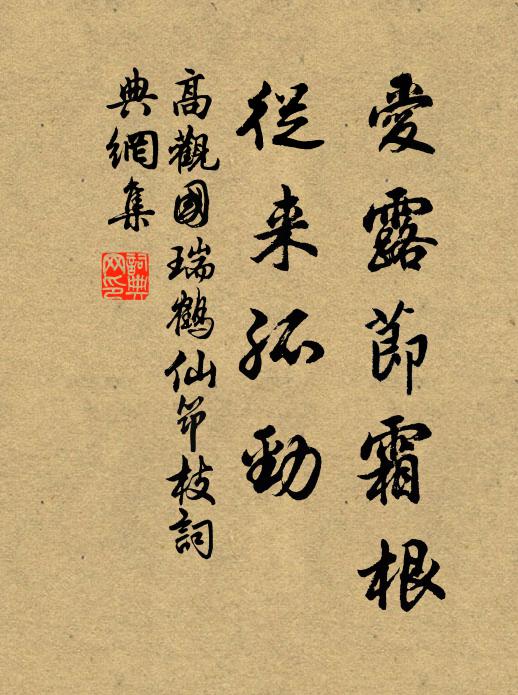 愛露節霜根
從来孤勁
高觀國瑞鶴仙筇枝詞
典網集
詞典
网印